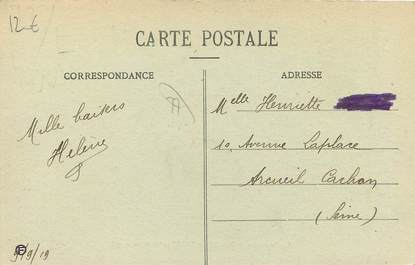 12 €
CARTE POSTALE
CORRESPONDANCE
ADRESSE
Mille baisers
Hélène
9/9/19
Melle Henriette
10, Avenue Laplace
Arcueil Cachan
(Seine)